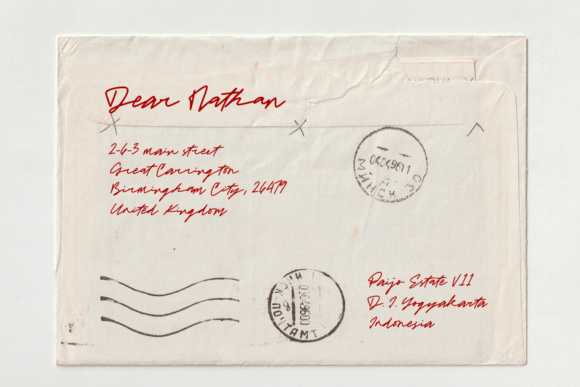 Dear Nathan
2-6-3 main street
Great Carrington
Birmingham City, 26479
United Kingdom
МИНСК 30
ПОЧТАМТ
Paijo Estate VII
D. I. Yogyakarta
Indonesia